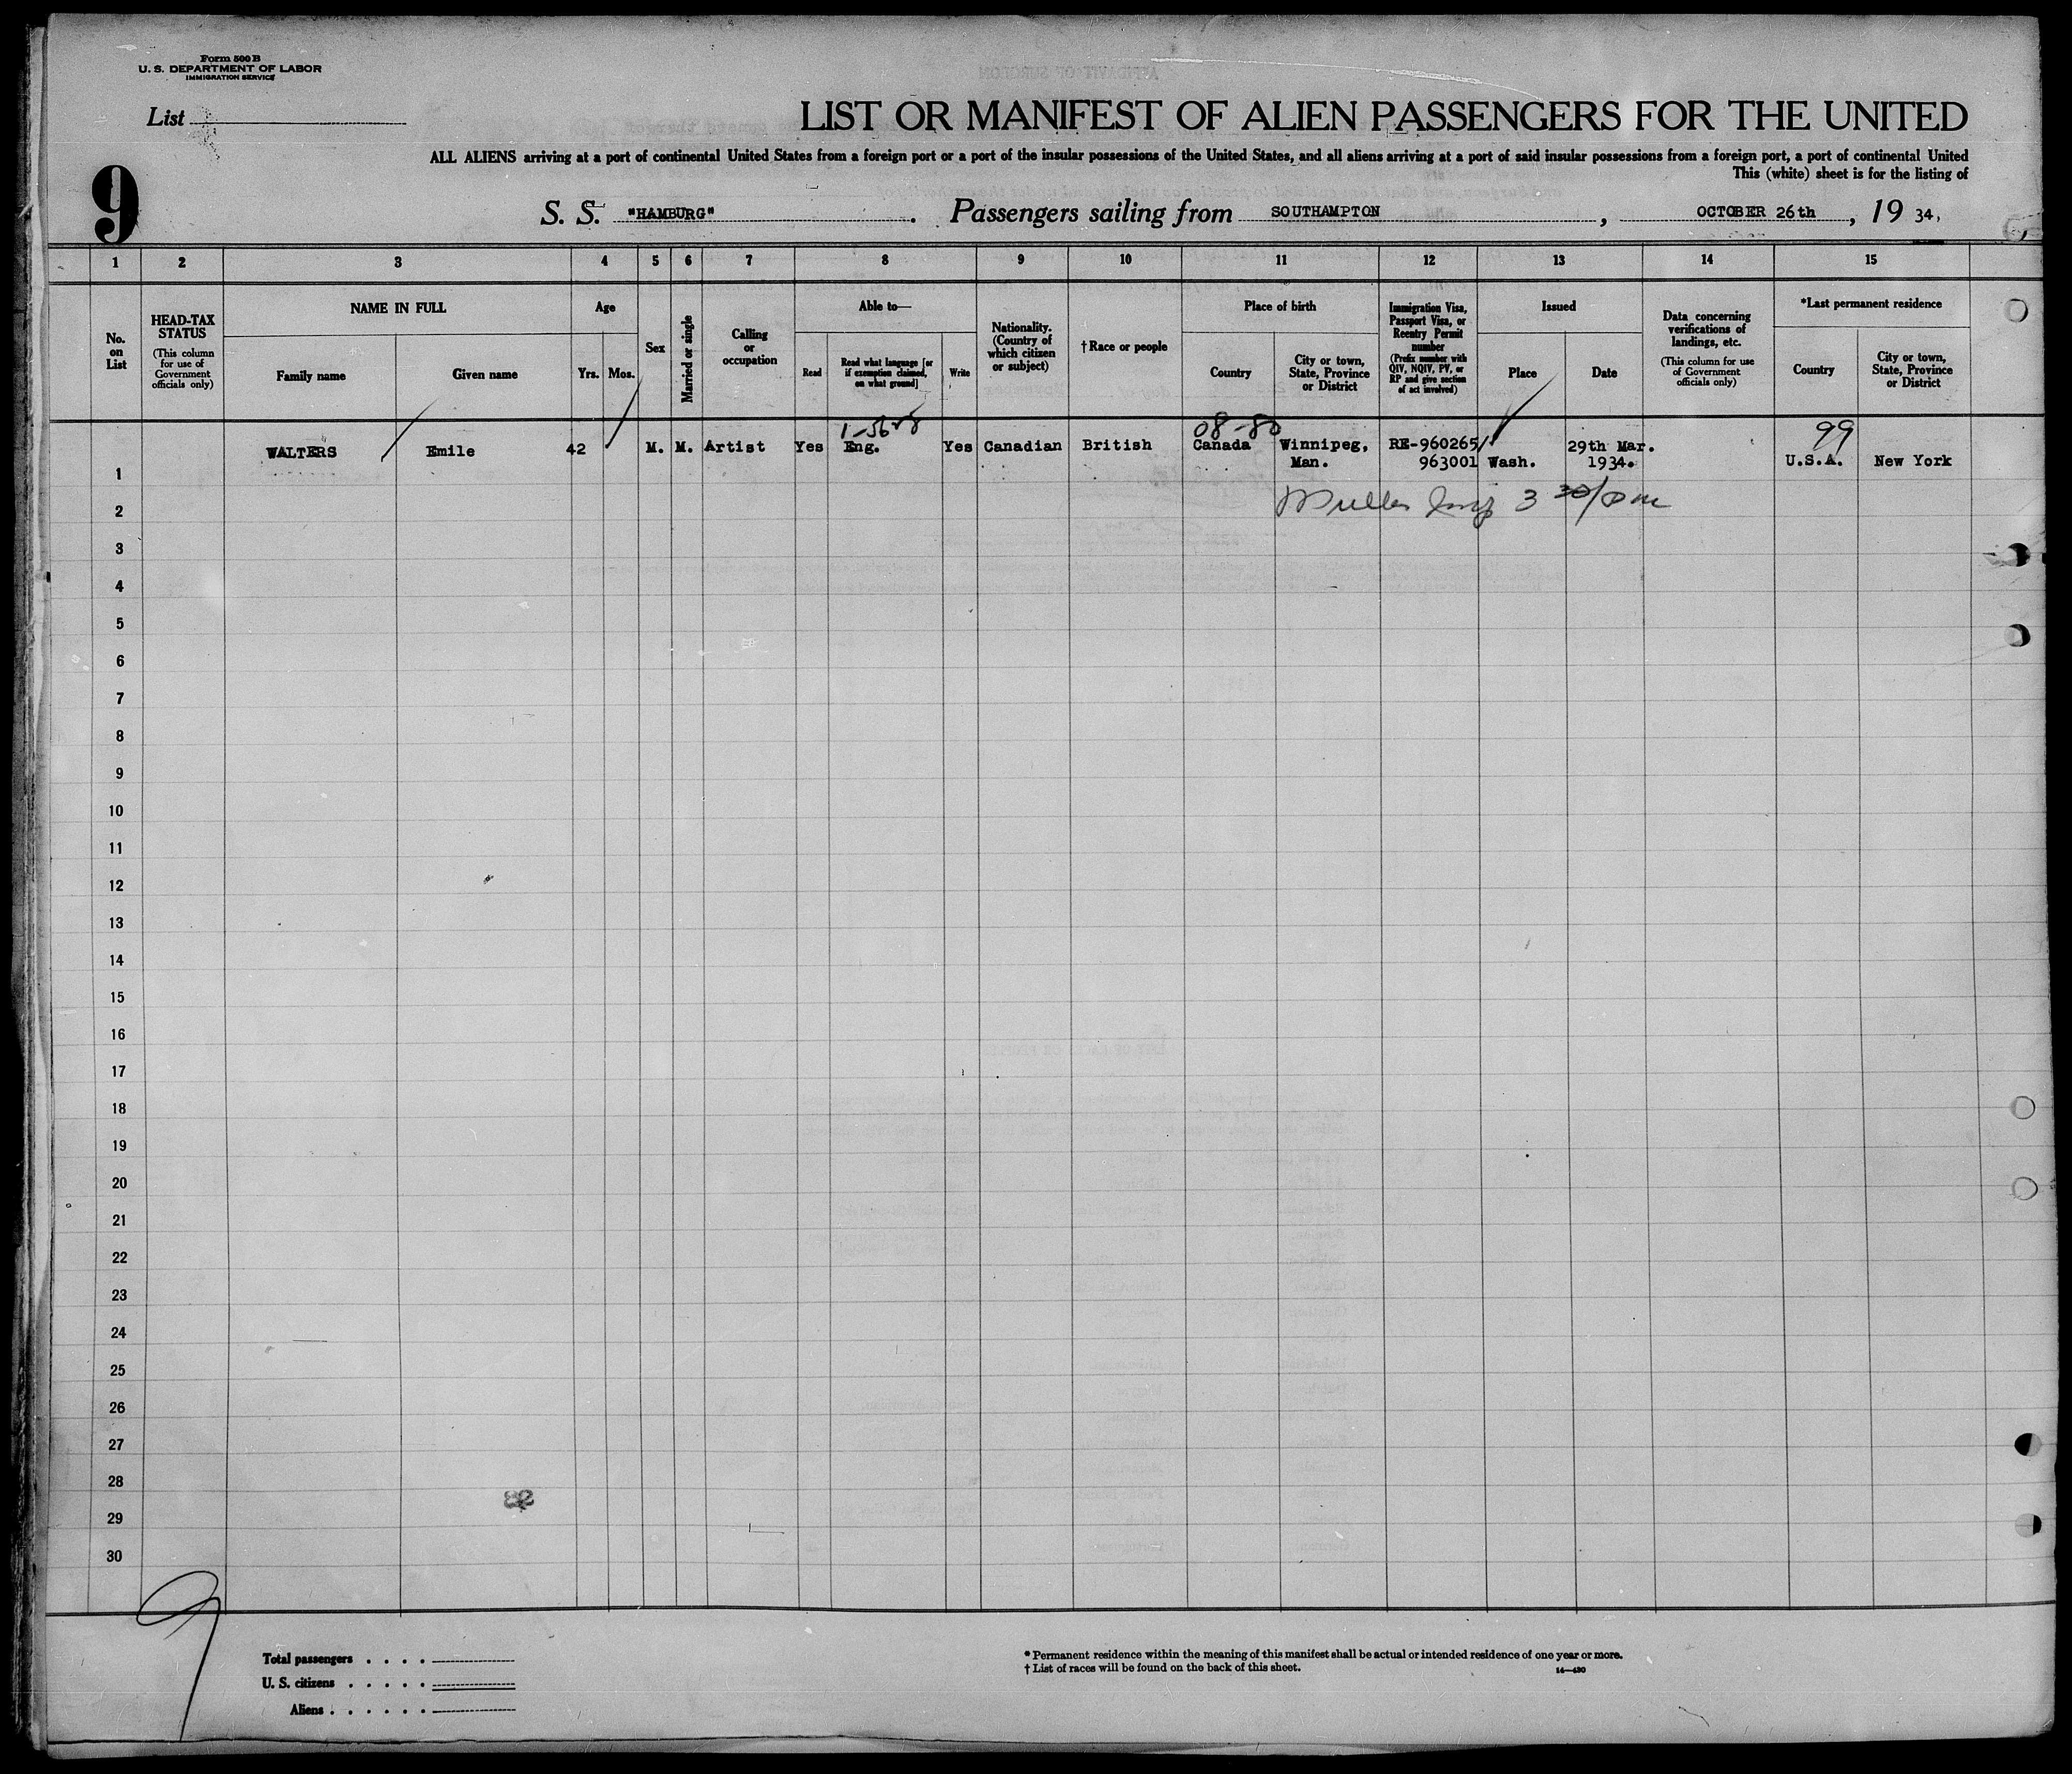 Form 500 B
U. S. DEPARTMENT OF LABOR
IMMIGRATION SERVICE
List
LIST OR MANIFEST OF ALIEN PASSENGERS FOR THE UNITED
ALL ALIENS arriving at a port of continental United States from a foreign port or a port of the insular possessions of the United States, and all aliens arriving at a port of said insular possessions from a foreign port, a port of continental United
This (white) sheet is for the listing of
9
S. S. "HAMBURG" . Passengers sailing from SOUTHAMPTON , OCTOBER 26th , 19 34.
1 2 3 4 5 6 7 8 9 10 11 12 13 14 15
No. on List
HEAD-TAX STATUS
(This column for use of Government officials only)
NAME IN FULL
Family name
Given name
Age
Yrs.
Mos.
Sex
Married or single
Calling or occupation
Able to—
Read
Read what language [or if exemption claimed, on what ground]
Write
Nationality. (Country of which citizen or subject)
†Race or people
Place of birth
Country
City or town, State, Province or District
Immigration Visa, Passport Visa, or Reentry Permit number
(Prefix number with QIV, NQIV, PV, or RP and give section of act involved)
Issued
Place
Date
Data concerning verifications of landings, etc.
(This column for use of Government officials only)
*Last permanent residence
Country
City or town, State, Province or District
08-80
99
WALTERS Emile 42 M. M. Artist Yes Eng. Yes Canadian British Canada Winnipeg, RE-960265/ 29th Mar.
1 Man. 963001 Wash. 1934. U.S.A. New York
2 3 30/pm
3
4
5
6
7
8
9
10
11
12
13
14
15
16
17
18
19
20
21
22
23
24
25
26
27
28
29
30
9
Total passengers . . . .
U. S. citizens . . . . .
Aliens . . . . . .
* Permanent residence within the meaning of this manifest shall be actual or intended residence of one year or more.
† List of races will be found on the back of this sheet.
14—430